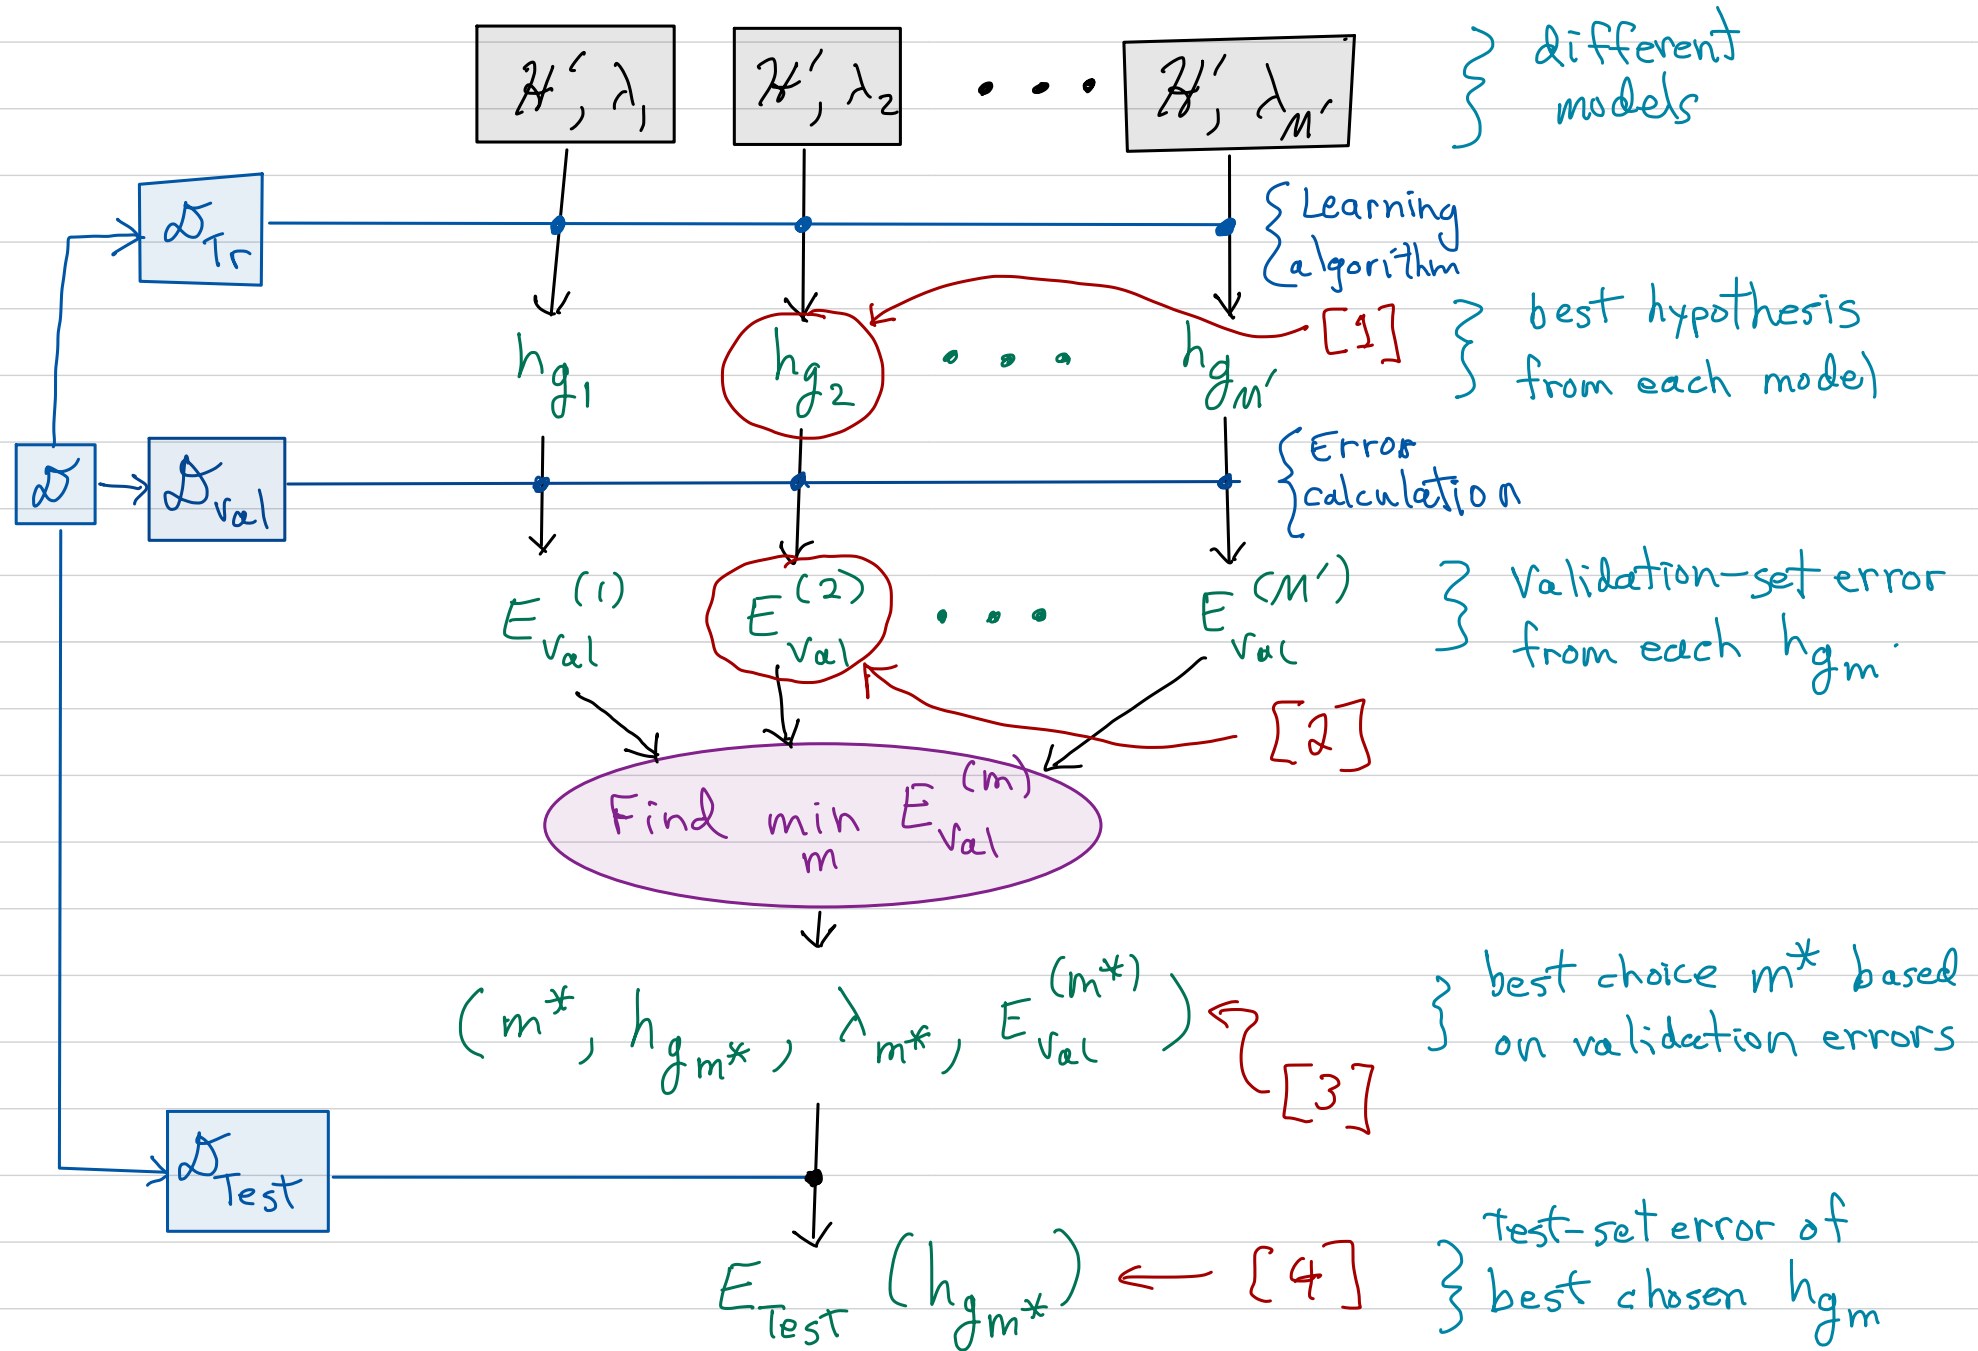 ℋ′, λ₁
ℋ′, λ₂
• • •
ℋ′, λ_M′
different
models
𝒟_Tr
Learning
algorithm
h_g₁
h_g₂
• • •
h_g_M′
[1]
best hypothesis
from each model
𝒟
𝒟_val
Error
calculation
E_val^(1)
E_val^(2)
• • •
E_val^(M′)
Validation-set error
from each h_g_m.
[2]
Find min_m E_val^(m)
(m*, h_g_m*, λ_m*, E_val^(m*))
[3]
best choice m* based
on validation errors
𝒟_Test
E_Test (h_g_m*)
[4]
Test-set error of
best chosen h_g_m